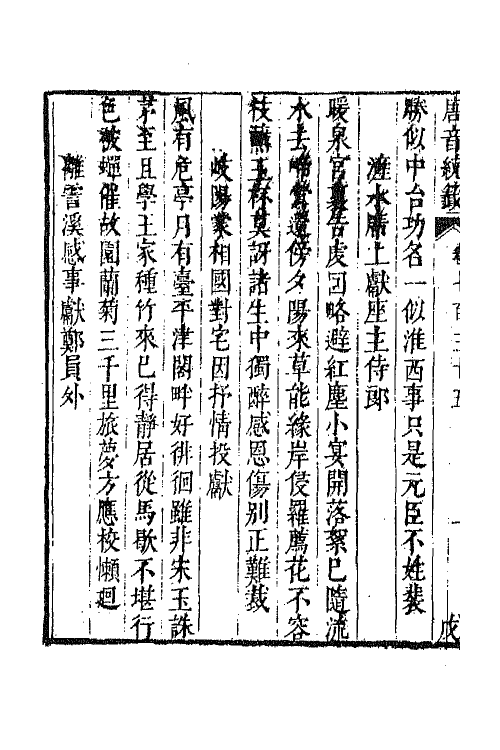 唐音統籤 卷七百三十五 一 戊
勝似中台功名一似淮西事只是元臣不姓裴
滻水席上獻座主侍郎
暖泉宮裏告虔回略避紅塵小宴開落絮已隨流
水去啼鶯還傍夕陽來草能緣岸侵羅薦花不容
枝蘸玉杯莫訝諸生中獨醉感恩傷別正難裁
岐陽蒙相國對宅因抒情投獻
風有危亭月有臺平津閣畔好徘徊雖非宋玉誅
茅至且學王家種竹來已得靜居從馬歇不堪行
色被蟬催故園蘭菊三千里旅夢方應校懶廻
離霅溪感事獻鄭員外